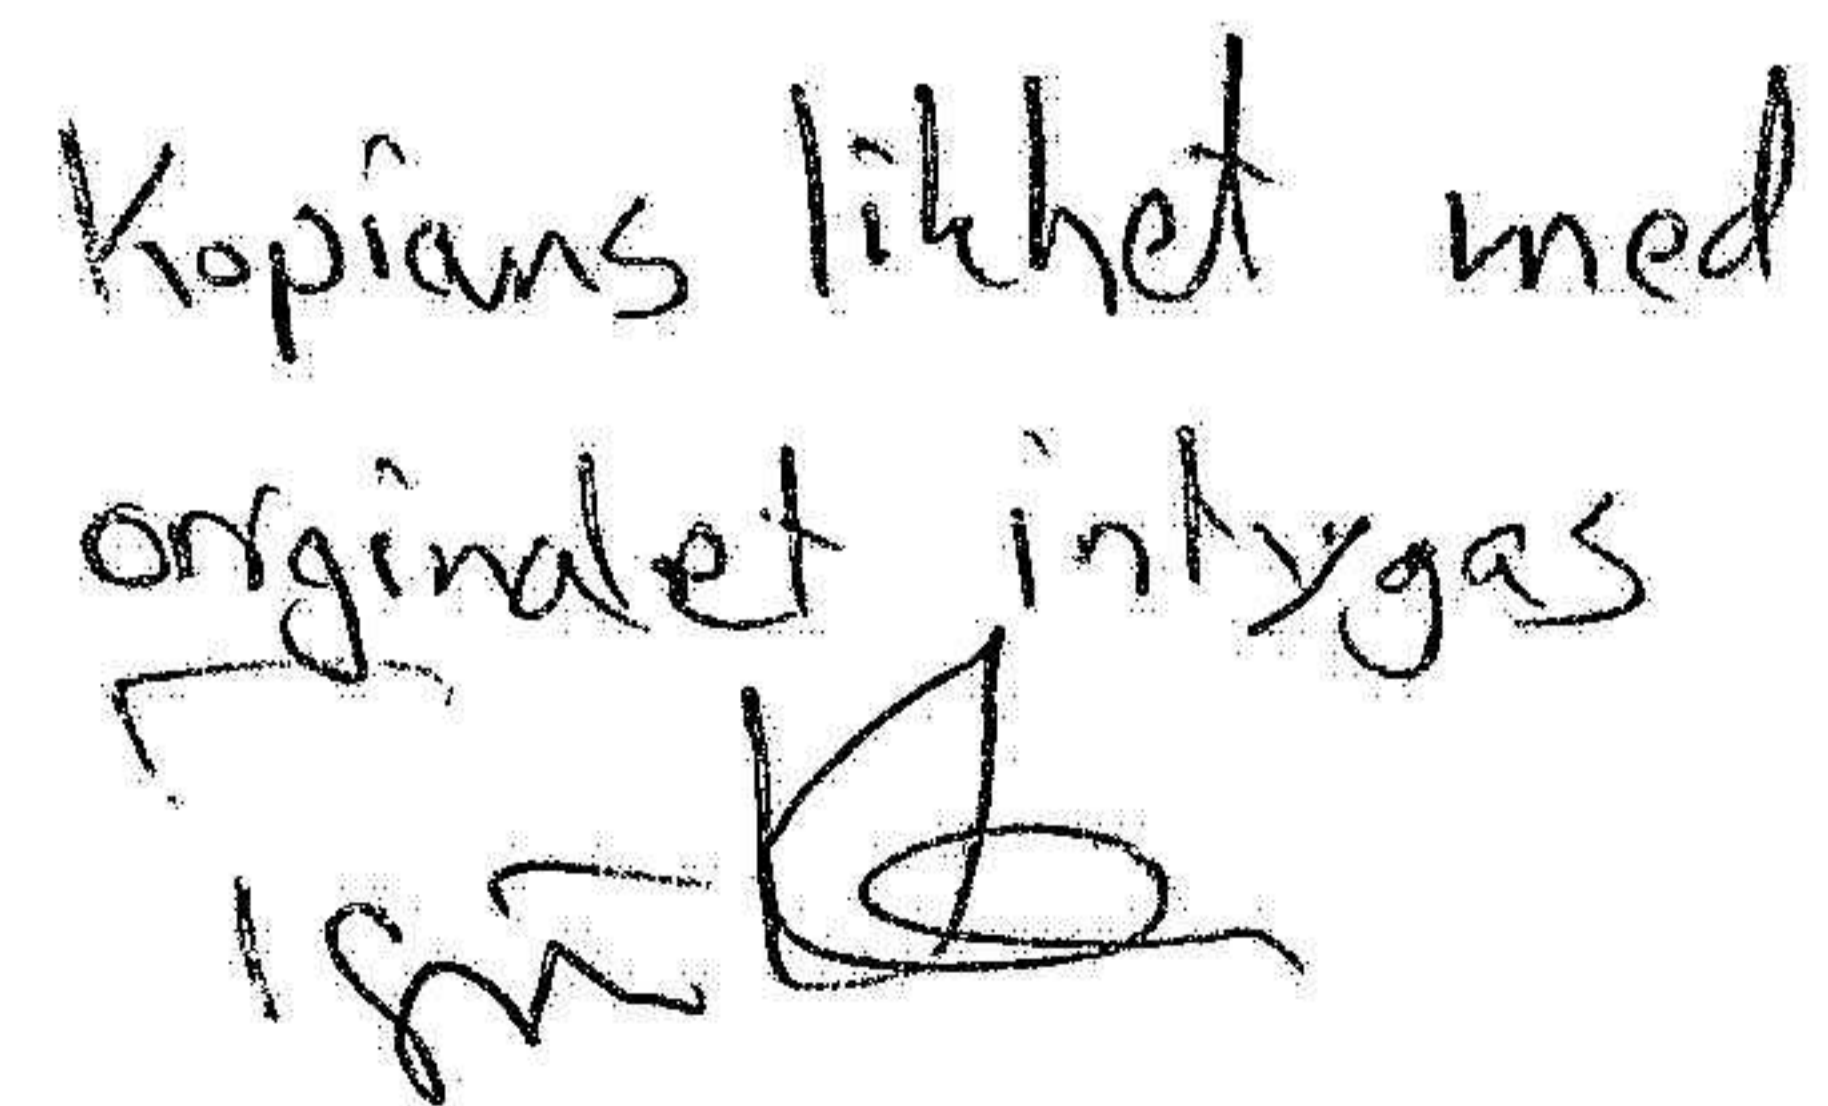 Kopians likhet med
orginalet intygas